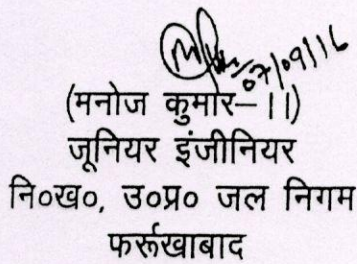 07/09/16
(मनोज कुमार–।।)
जूनियर इंजीनियर
नि०ख०, उ०प्र० जल निगम
फर्रूखाबाद